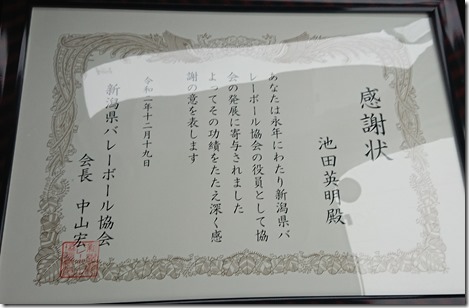 感謝状
池田英明殿
あなたは永年にわたり新潟県バ
レーボール協会の役員として協
会の発展に寄与されました
よってその功績をたたえ深く感
謝の意を表します
令和二年十二月十九日
新潟県バレーボール協会
会長 中山宏